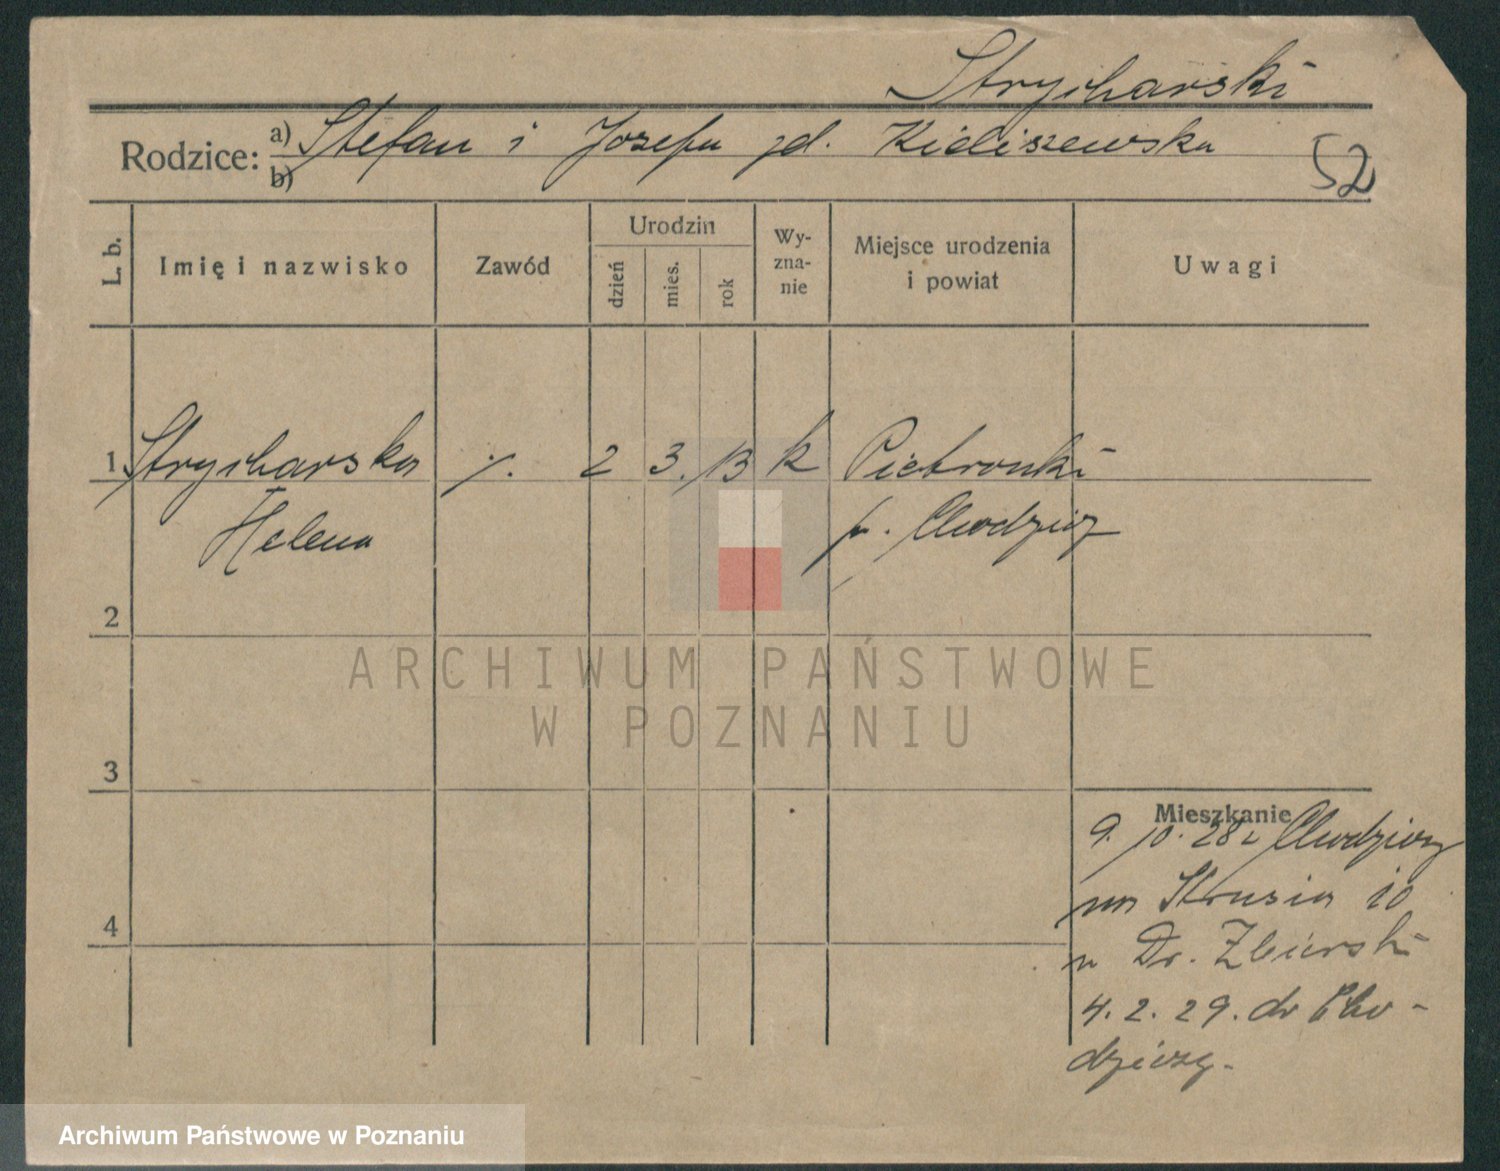 Strycharski
Rodzice: a) Stefan i Józefa zd. Kieliszewska
b)
52
L. b.
Imię i nazwisko
Zawód
Urodzin
dzień
mies.
rok
Wy-
zna-
nie
Miejsce urodzenia
i powiat
Uwagi
1 Strycharska ./. 2 3. 13 k Pietronki
Helena p. Chodzież
2
3
4
Mieszkanie
9. 10. 28 z Chodzieży
na Strusia 10
u Dr. Zbierski
4. 2. 29. do Cho-
dzieży.
ARCHIWUM PAŃSTWOWE
W POZNANIU
Archiwum Państwowe w Poznaniu